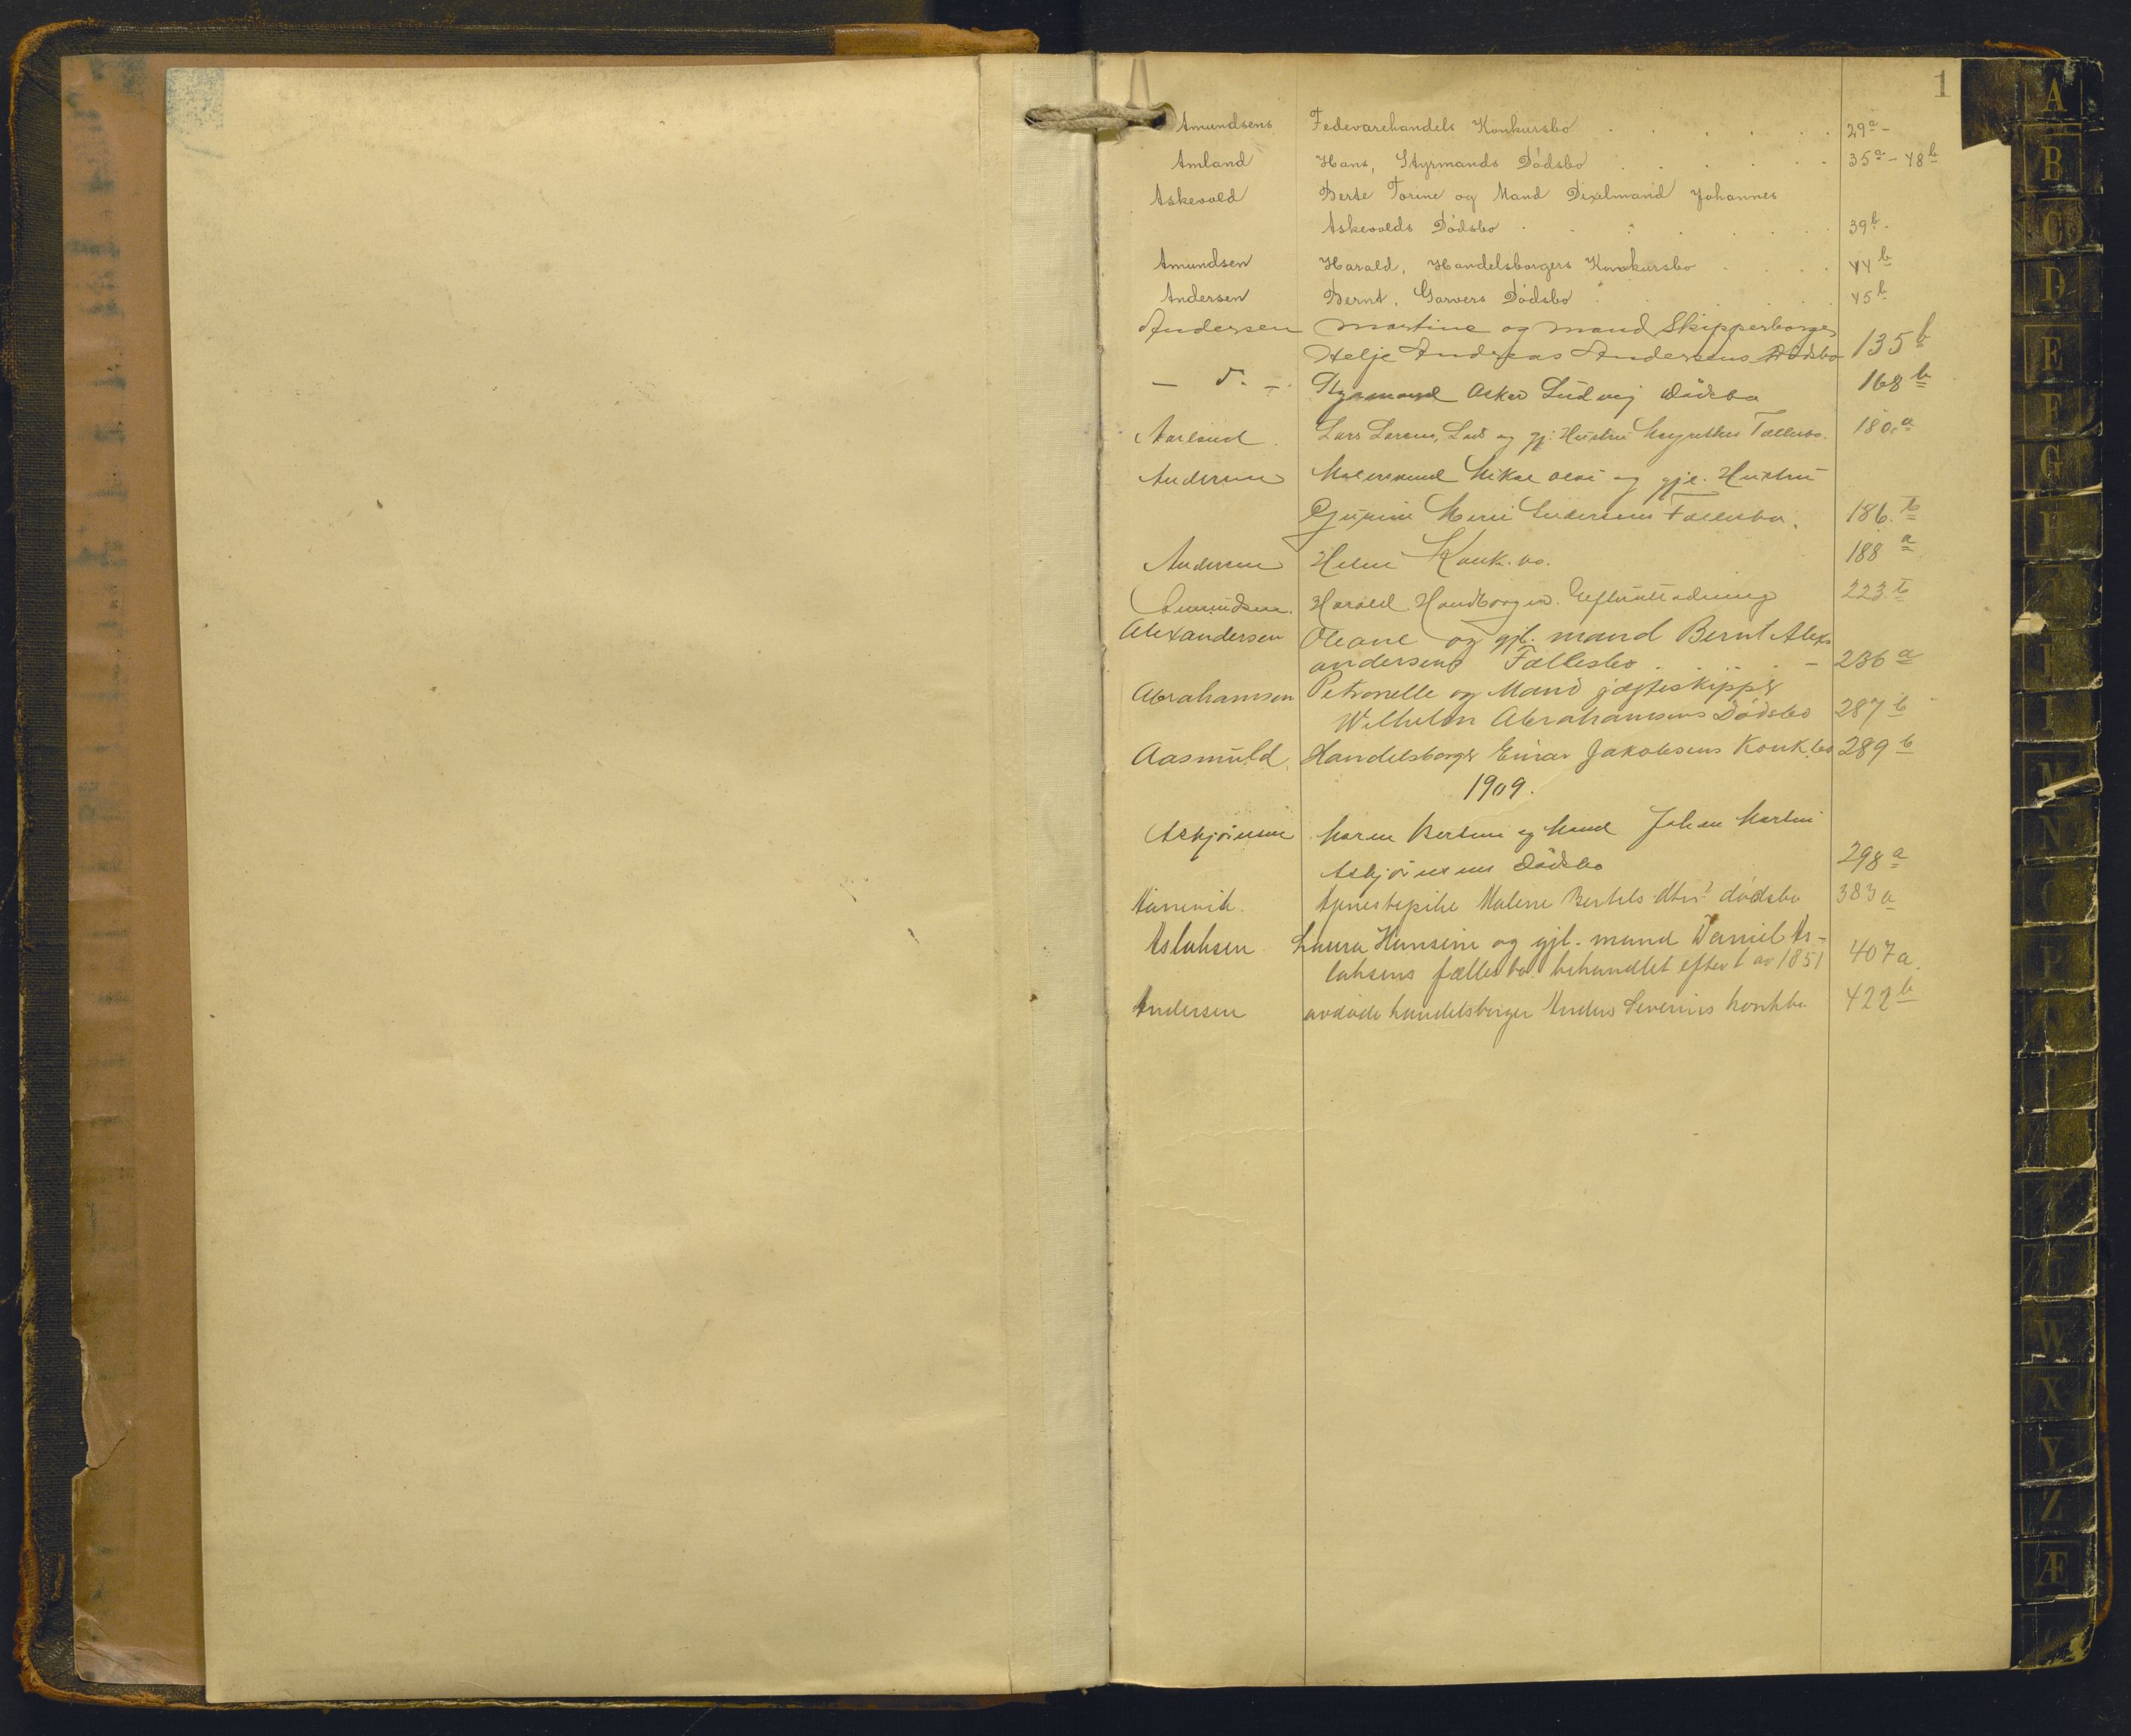 1
Amundsens Fedevarehandels Konkursbo . . . . . . 29a -
Amland Hans, Styrmands Dødsbo . . . . . . 35a - 48b
Askevold Berte Torine og Mand Dixelmand Johannes
Askevolds Dødsbo . . . . . . . 39b.
Amundsen Harald, Handelsborgers Konkursbo . . . . 44b
Andersen Bernt, Garvers Dødsbo . . . . . . 45b
Andersen Martine og mand Skipperborger
Helje Andreas Andersens Dødsbo 135b
— d. — Styrmand Ludvig dødsbo 168b
Lars og gj. Hustru Fællesbo. 180.a
Andersen og gjl. Hustru
Fællesbo. 186.b
Andersen Konk. bo. 188a
Amundsen. Harald. 223.b
Alexandersen Oleane og gjl. mand Bernt Alex
andersens Fællesbo . . . . — 236a
Abrahamsen Petronelle og Mand jægteskipper
Wilhelm Abrahamsens Dødsbo 287b
Aasmuld, Handelsborger Einar Jakobsens Konkbo 289b
1909.
Maren Bertine og Mand Johan Martin
dødsbo 298a
Malene Bertels dtrs dødsbo 383a
Aslaksen Laura Hansine og gjl. mand Daniel As-
laksens fællesbo behandlet efter l av 1851 407a.
Andersen avdøde handelsborger Anders Severins konkbo 422b
A
B
C
D
E
F
G
H
I
M
N
O
P
T
W
X
Y
Z
Æ